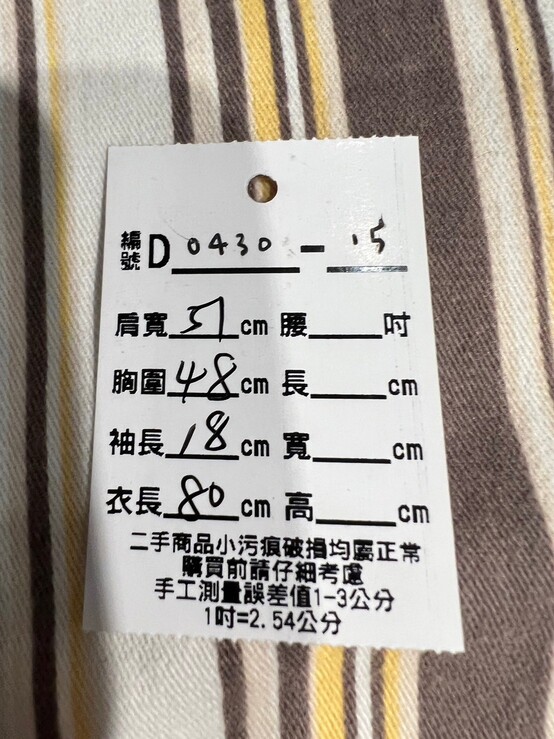 編號 D 0430 - 15
肩寬 51 cm 腰 吋
胸圍 48 cm 長 cm
袖長 18 cm 寬 cm
衣長 80 cm 高 cm
二手商品小污痕破損均屬正常
購買前請仔細考慮
手工測量誤差值1-3公分
1吋=2.54公分